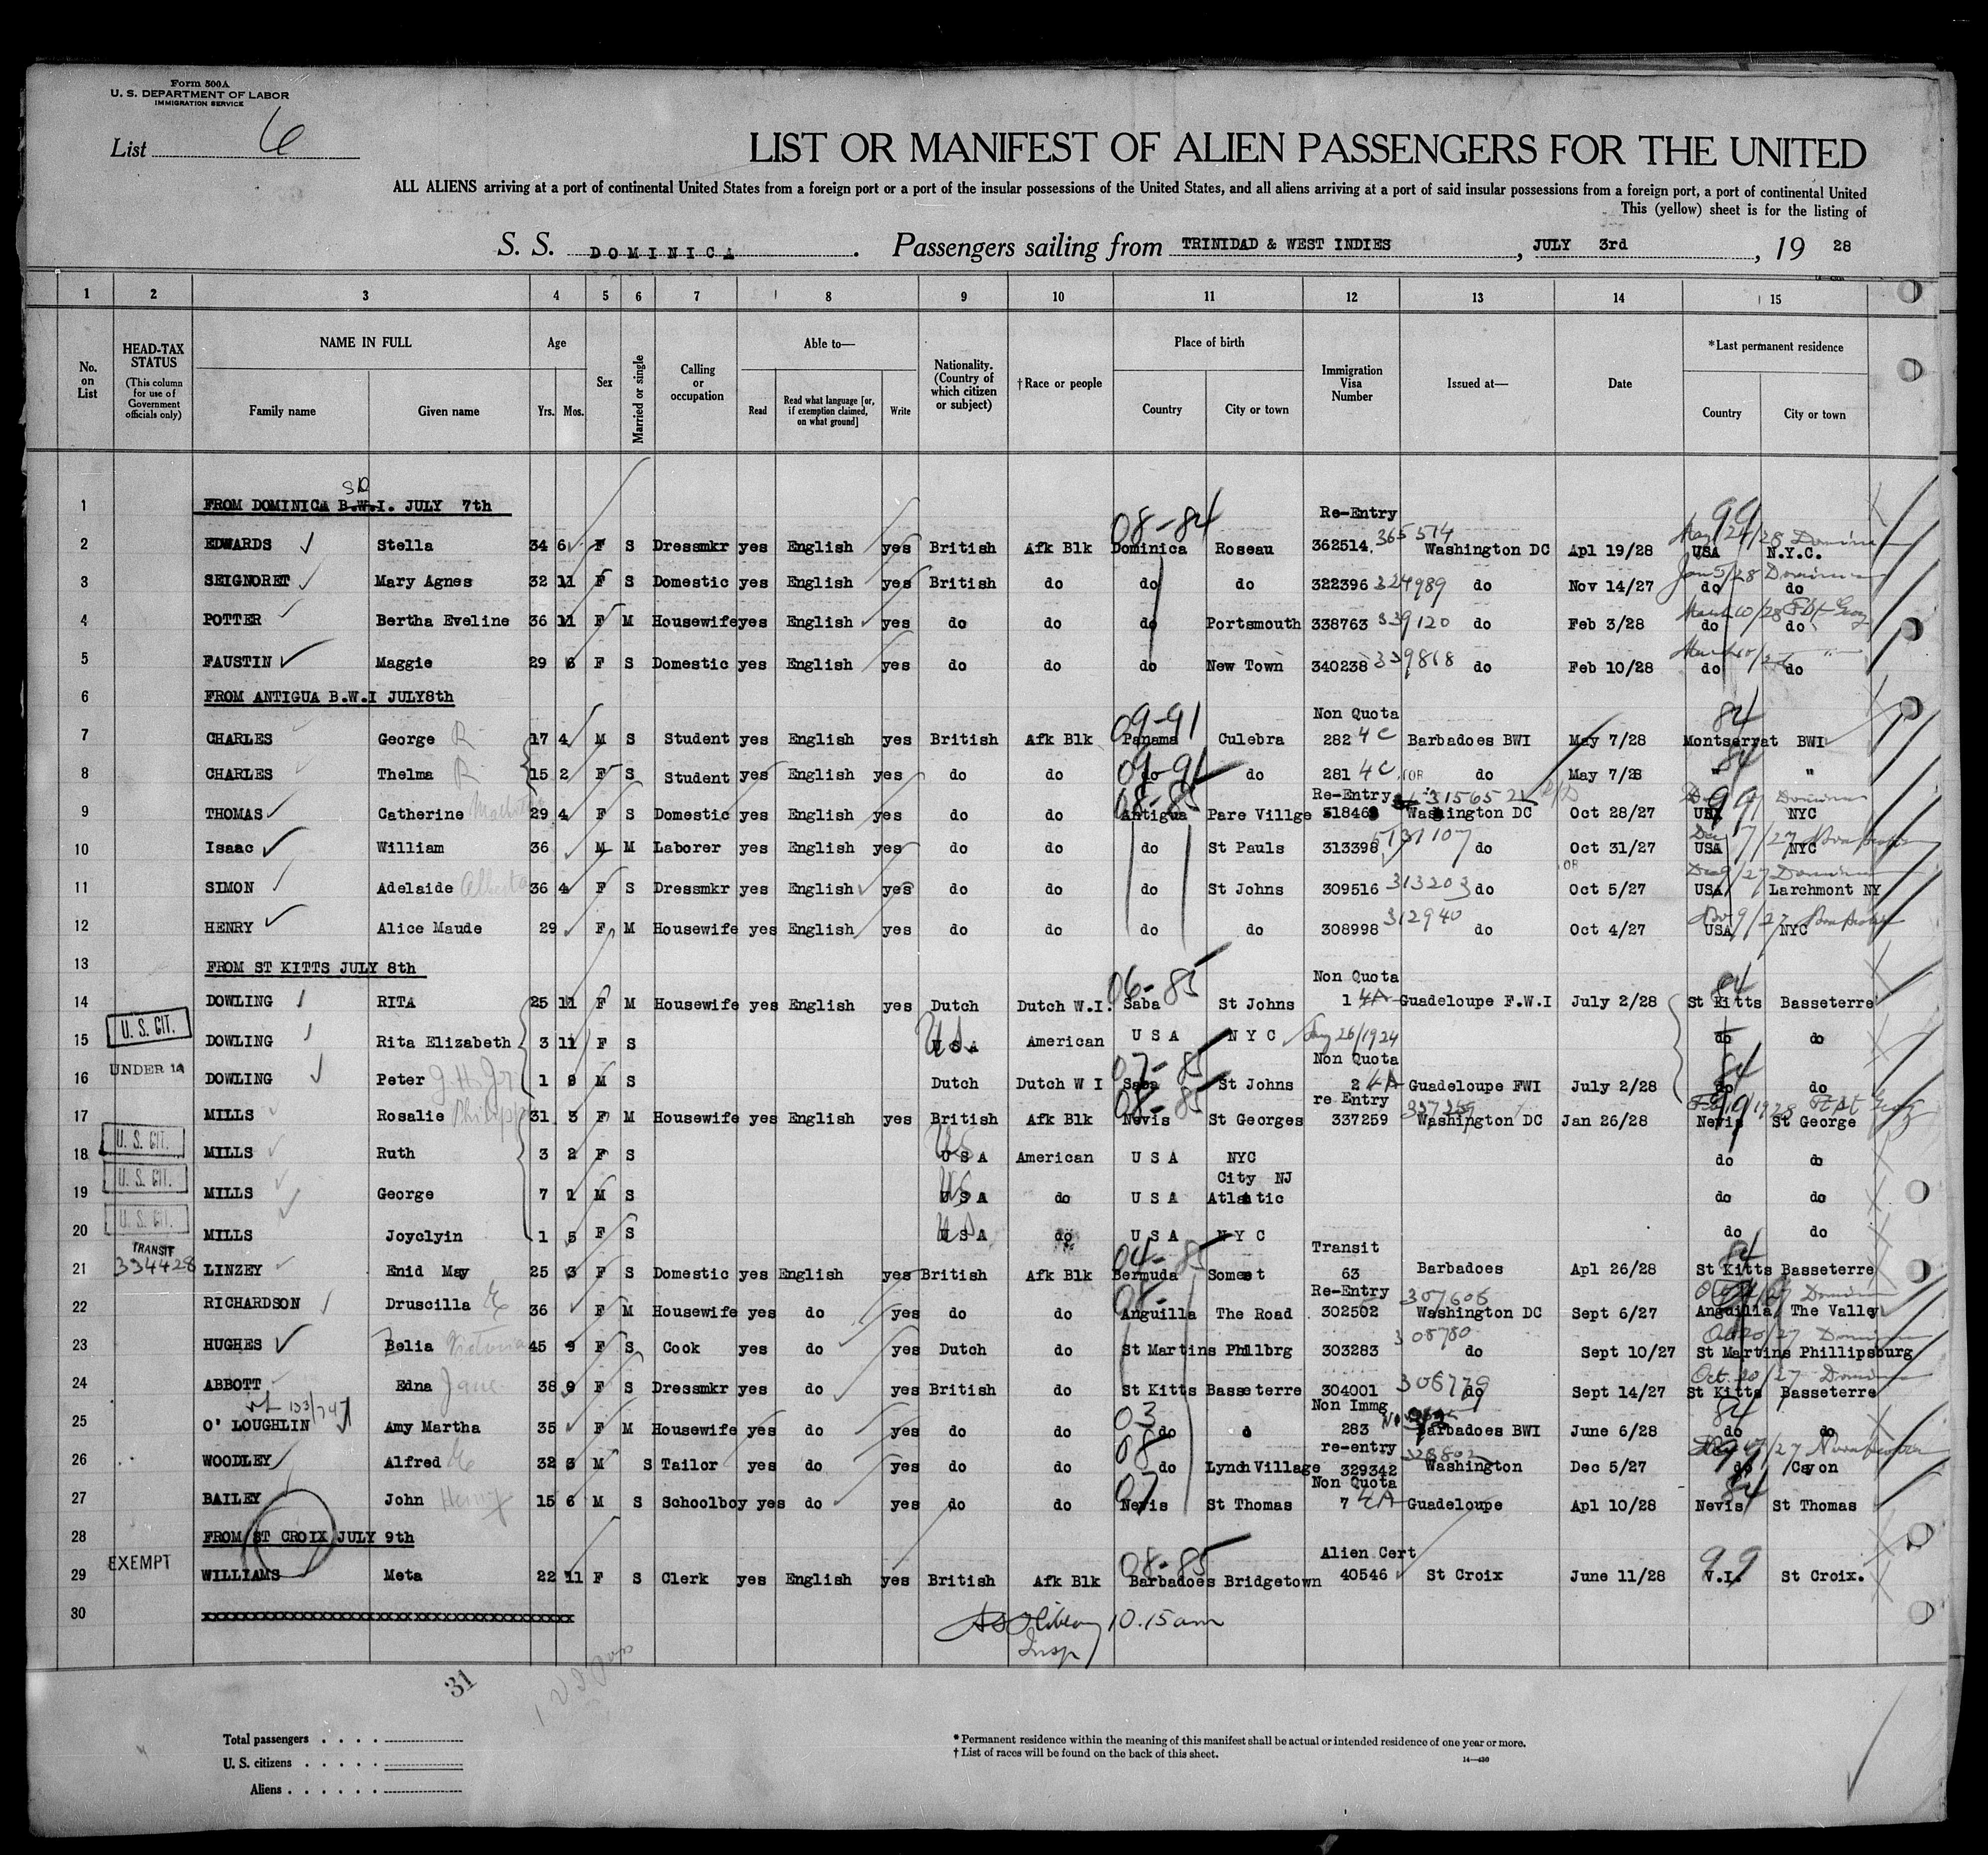 Form 500A
U. S. DEPARTMENT OF LABOR
IMMIGRATION SERVICE
List 6
LIST OR MANIFEST OF ALIEN PASSENGERS FOR THE UNITED
ALL ALIENS arriving at a port of continental United States from a foreign port or a port of the insular possessions of the United States, and all aliens arriving at a port of said insular possessions from a foreign port, a port of continental United
This (yellow) sheet is for the listing of
S. S. DOMINICA. Passengers sailing from TRINIDAD & WEST INDIES, JULY 3rd, 19 28
1 2 3 4 5 6 7 8 9 10 11 12 13 14 15
No. on List
HEAD-TAX STATUS (This column for use of Government officials only)
NAME IN FULL Family name Given name
Age Yrs. Mos.
Sex
Married or single
Calling or occupation
Able to— Read Read what language [or, if exemption claimed, on what ground] Write
Nationality. (Country of which citizen or subject)
†Race or people
Place of birth Country City or town
Immigration Visa Number
Issued at—
Date
*Last permanent residence Country City or town
1 FROM DOMINICA B.W.I. JULY 7th
08-84 Re-Entry 99
2 EDWARDS Stella 34 6 F S Dressmkr yes English yes British Afk Blk Dominica Roseau 362514 365574 Washington DC Apl 19/28 USA N.Y.C.
3 SEIGNORET Mary Agnes 32 11 F S Domestic yes English yes British do do do 322396 324989 do Nov 14/27 do do
4 POTTER Bertha Eveline 36 11 F M Housewife yes English yes do do do Portsmouth 338763 339120 do Feb 3/28 do do
5 FAUSTIN Maggie 29 6 F S Domestic yes English yes do do do New Town 340238 339818 do Feb 10/28 do do
6 FROM ANTIGUA B.W.I JULY8th
09-91 Non Quota 84
7 CHARLES George R 17 4 M S Student yes English yes British Afk Blk Panama Culebra 282 4C Barbadoes BWI May 7/28 Montserrat BWI
09-91 84
8 CHARLES Thelma R 15 2 F S Student yes English yes do do do do 281 4C do May 7/28 " "
08-85 Re-Entry 99
9 THOMAS Catherine 29 4 F S Domestic yes English yes do do Antigua Pare Villge Washington DC Oct 28/27 USA NYC
10 Isaac William 36 M M Laborer yes English yes do do do St Pauls 313398 do Oct 31/27 USA NYC
11 SIMON Adelaide Alberta 36 4 F S Dressmkr yes English yes do do do St Johns 309516 313203 do Oct 5/27 USA Larchmont NY
12 HENRY Alice Maude 29 F M Housewife yes English yes do do do do 308998 312940 do Oct 4/27 USA NYC
13 FROM ST KITTS JULY 8th
06-85 Non Quota 84
14 DOWLING RITA 25 11 F M Housewife yes English yes Dutch Dutch W.I. Saba St Johns 1 4A Guadeloupe F.W.I July 2/28 St Kitts Basseterre
U. S. CIT.
15 DOWLING Rita Elizabeth 3 11 F S US USA American U S A N Y C Aug 26/1924 do do
UNDER 14 07-85 Non Quota 84
16 DOWLING Peter 1 9 M S Dutch Dutch W I Saba St Johns 2 4A Guadeloupe FWI July 2/28 do do
08-85 re Entry 99
17 MILLS Rosalie 31 3 F M Housewife yes English yes British Afk Blk Nevis St Georges 337259 Washington DC Jan 26/28 Nevis St George
U. S. CIT.
18 MILLS Ruth 3 2 F S US U S A American U S A NYC do do
U. S. CIT. City NJ
19 MILLS George 7 1 M S US U S A do U S A Atlantic do do
U. S. CIT.
20 MILLS Joyclyin 1 5 F S US U S A do U S A N Y C do do
TRANSIT 334428 04-85 Transit 84
21 LINZEY Enid May 25 3 F S Domestic yes English yes British Afk Blk Bermuda Someet 63 Barbadoes Apl 26/28 St Kitts Basseterre
08- Re-Entry
22 RICHARDSON Druscilla E 36 F M Housewife yes do yes do do Anguilla The Road 302502 307606 Washington DC Sept 6/27 Anguilla The Valley
23 HUGHES Belia Victoria 45 9 F S Cook yes do yes Dutch do St Martins Phllbrg 303283 308780 do Sept 10/27 St Martins Phillipsburg
Oct. 20/27
24 ABBOTT Edna Jane 38 9 F S Dressmkr yes do yes British do St Kitts Basseterre 304001 308779 do Sept 14/27 St Kitts Basseterre
03 Non Immg 84
25 O' LOUGHLIN Amy Martha 35 F M Housewife yes do yes do do do 283 Barbadoes BWI June 6/28 do do
08 re-entry 99
26 WOODLEY Alfred 32 3 M S Tailor yes do yes do do do Lynch Village 329342 Washington Dec 5/27 do Cayon
07 Non Quota 84
27 BAILEY John Henry 15 6 M S Schoolboy yes do yes do do Nevis St Thomas 7 4A Guadeloupe Apl 10/28 Nevis St Thomas
28 FROM ST CROIX JULY 9th
EXEMPT 08-85 Alien Cert 99
29 WILLIAMS Meta 22 11 F S Clerk yes English yes British Afk Blk Barbadoes Bridgetown 40546 St Croix June 11/28 V.I. St Croix.
30 xxxxxxxxxxxxxxxxxxxxxxxxxxxxxxxxxxxxxxx
10.15 am
Insp
31
Total passengers
U. S. citizens
Aliens
* Permanent residence within the meaning of this manifest shall be actual or intended residence of one year or more.
† List of races will be found on the back of this sheet.
14—430